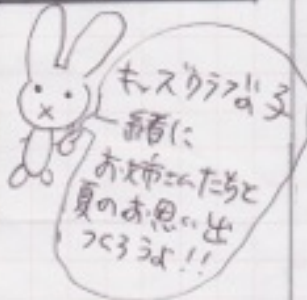 キッズクラブの子
一緒に
お姉さんたちと
夏のお思い出
つくろうよ!!